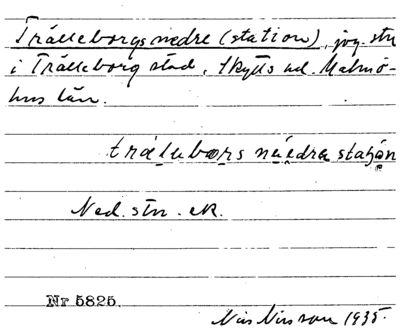 Trälleborgs nedre (station), jvg.stn
i Trälleborg stad, Skytts hd. Malmö-
hus län.
trälebors nedra
Ned. stn. ek.
Nr 5825.
Nils Nilsson 1935.